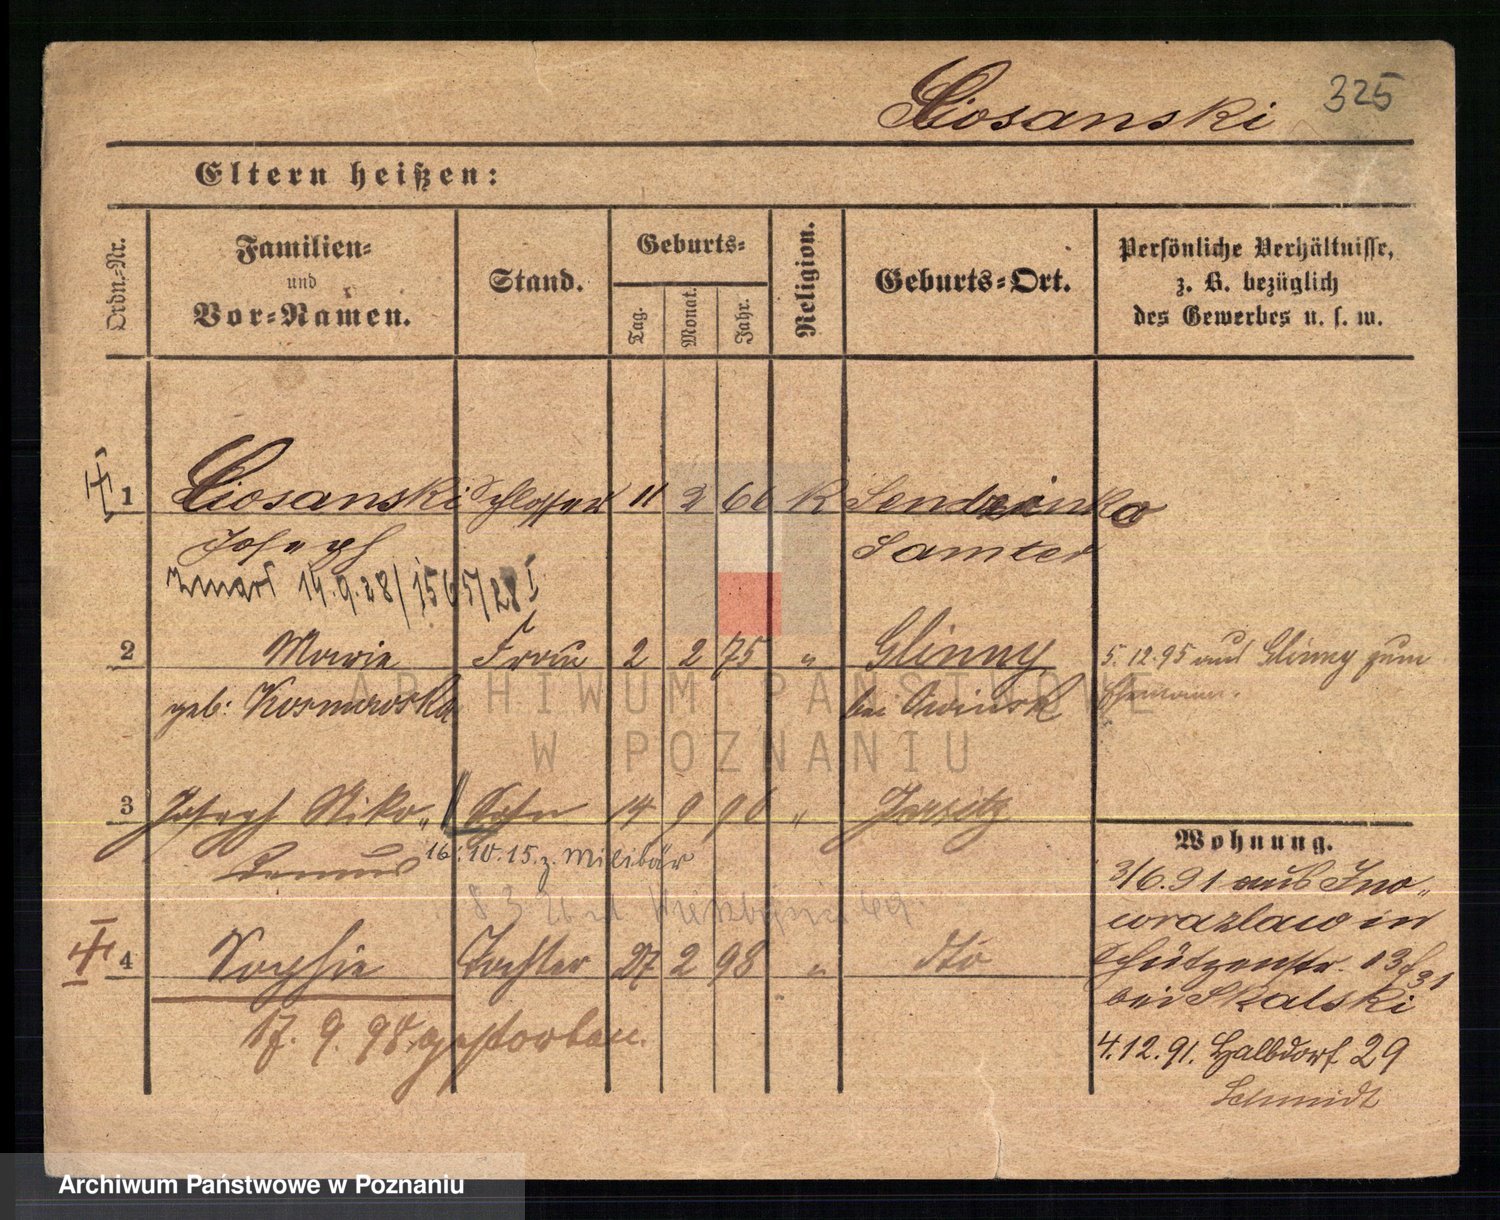 Ciosanski 325
Eltern heißen:
Ordn.=Nr.
Familien=
und
Vor=Namen.
Stand.
Geburts=
Tag.
Monat.
Jahr.
Religion.
Geburts=Ort.
Persönliche Verhältnisse,
z. B. bezüglich
des Gewerbes u. s. w.
1 Ciosanski Schlosser 11 2 66 K Sendzinko
Joseph Samter
zmarł 14.9.28/1565/28 I
2 Marie Frau 2 2 75 " Glinny 5.12.95 aus Glinny zum
geb: bei Owinsk Ehemann.
ARCHIWUM PAŃSTWOWE
W POZNANIU
3 Joseph Niko„ Sohn 14 9 96 " Jersitz
demus 16.10.15. z. Militär
4 Sophie Tochter 27 2 98 " dto
17. 9. 98. gestorben.
Wohnung.
3/6.91 aus Ino„
wrazlaw in
Schützenstr. 13 f 31
bei Skalski
4.12.91. Halbdorf 29
Schmidt
Archiwum Państwowe w Poznaniu